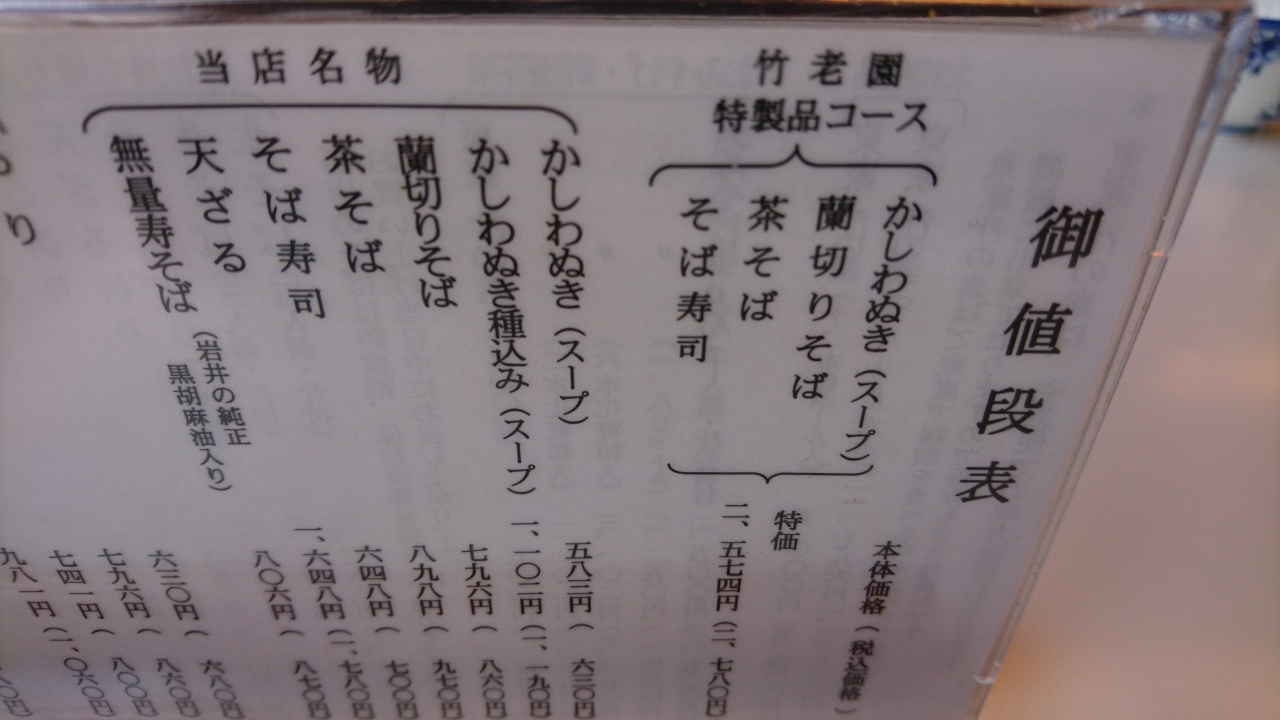 御値段表
本体価格(税込価格)
竹老園
特製品コース
かしわぬき(スープ)
蘭切りそば
茶そば
そば寿司
特価
二、五七四円(二、七八〇円)
当店名物
かしわぬき(スープ) 五八三円( 六三〇円
かしわぬき種込み(スープ) 一、一〇二円(一、一九〇円
蘭切りそば 七九六円( 八六〇円
茶そば 八九八円( 九七〇円
そば寿司 六四八円( 七〇〇円
天ざる 一、六四八円(一、七八〇円
無量寿そば(岩井の純正
黒胡麻油入り) 八〇六円( 八七〇円
六三〇円( 六八〇円
七九六円( 八六〇円
七四一円( 八〇〇円
九八一円(一、〇六〇円
り